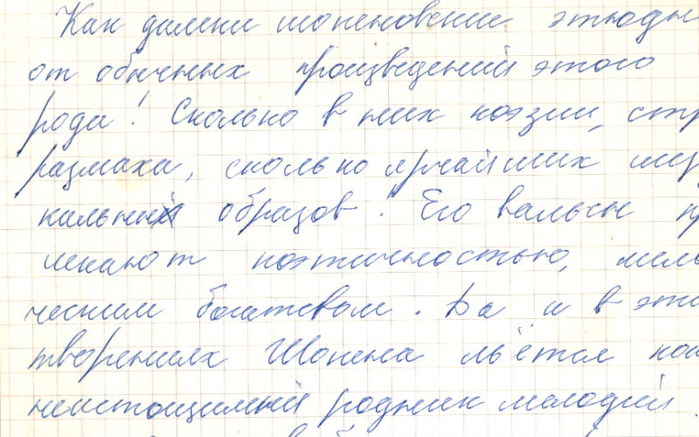 Как далеки шопеновские этюды
от обычных произведений этого
рода! Сколько в них поэзии, стр
размаха, сколько ярчайших муз
кальных образов! Его вальсы пр
лекают поэтичностью, мело
ческим богатством. Да и в этих
творениях Шопена льётся
неистощимый родник мелодий.